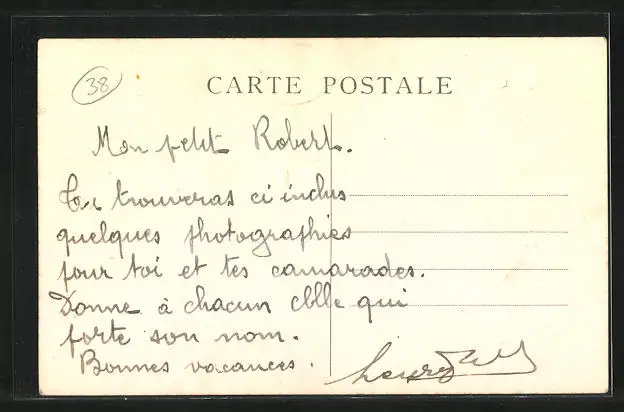 38
CARTE POSTALE
Mon petit Robert.
Tu trouveras ci inclus
quelques photographies
pour toi et tes camarades.
Donne à chacun celle qui
porte son nom.
Bonnes vacances.